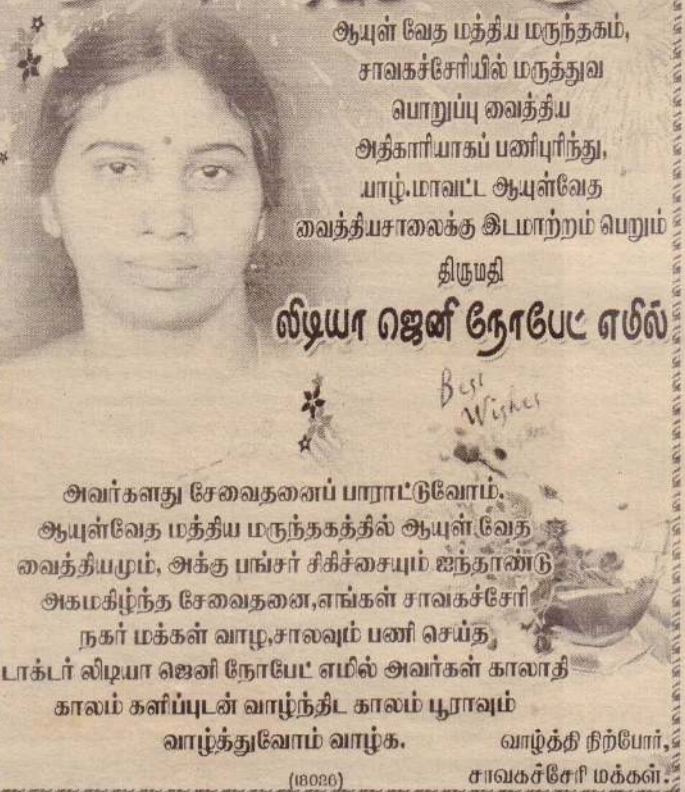 ஆயுள் வேத மத்திய மருந்தகம்,
சாவகச்சேரியில் மருத்துவ
பொறுப்பு வைத்திய
அதிகாரியாகப் பணிபுரிந்து,
யாழ்.மாவட்ட ஆயுள்வேத
வைத்தியசாலைக்கு இடமாற்றம் பெறும்
திருமதி
லிடியா ஜெனி நோபேட் எமில்
Best
Wishes
அவர்களது சேவைதனைப் பாராட்டுவோம்.
ஆயுள்வேத மத்திய மருந்தகத்தில் ஆயுள் வேத
வைத்தியமும், அக்கு பங்சர் சிகிச்சையும் ஐந்தாண்டு
அகமகிழ்ந்த சேவைதனை,எங்கள் சாவகச்சேரி
நகர் மக்கள் வாழ,சாலவும் பணி செய்த
டாக்டர் லிடியா ஜெனி நோபேட் எமில் அவர்கள் காலாதி
காலம் களிப்புடன் வாழ்ந்திட காலம் பூராவும்
வாழ்த்துவோம் வாழ்க.
வாழ்த்தி நிற்போர்,
சாவகச்சேரி மக்கள்.
(18026)